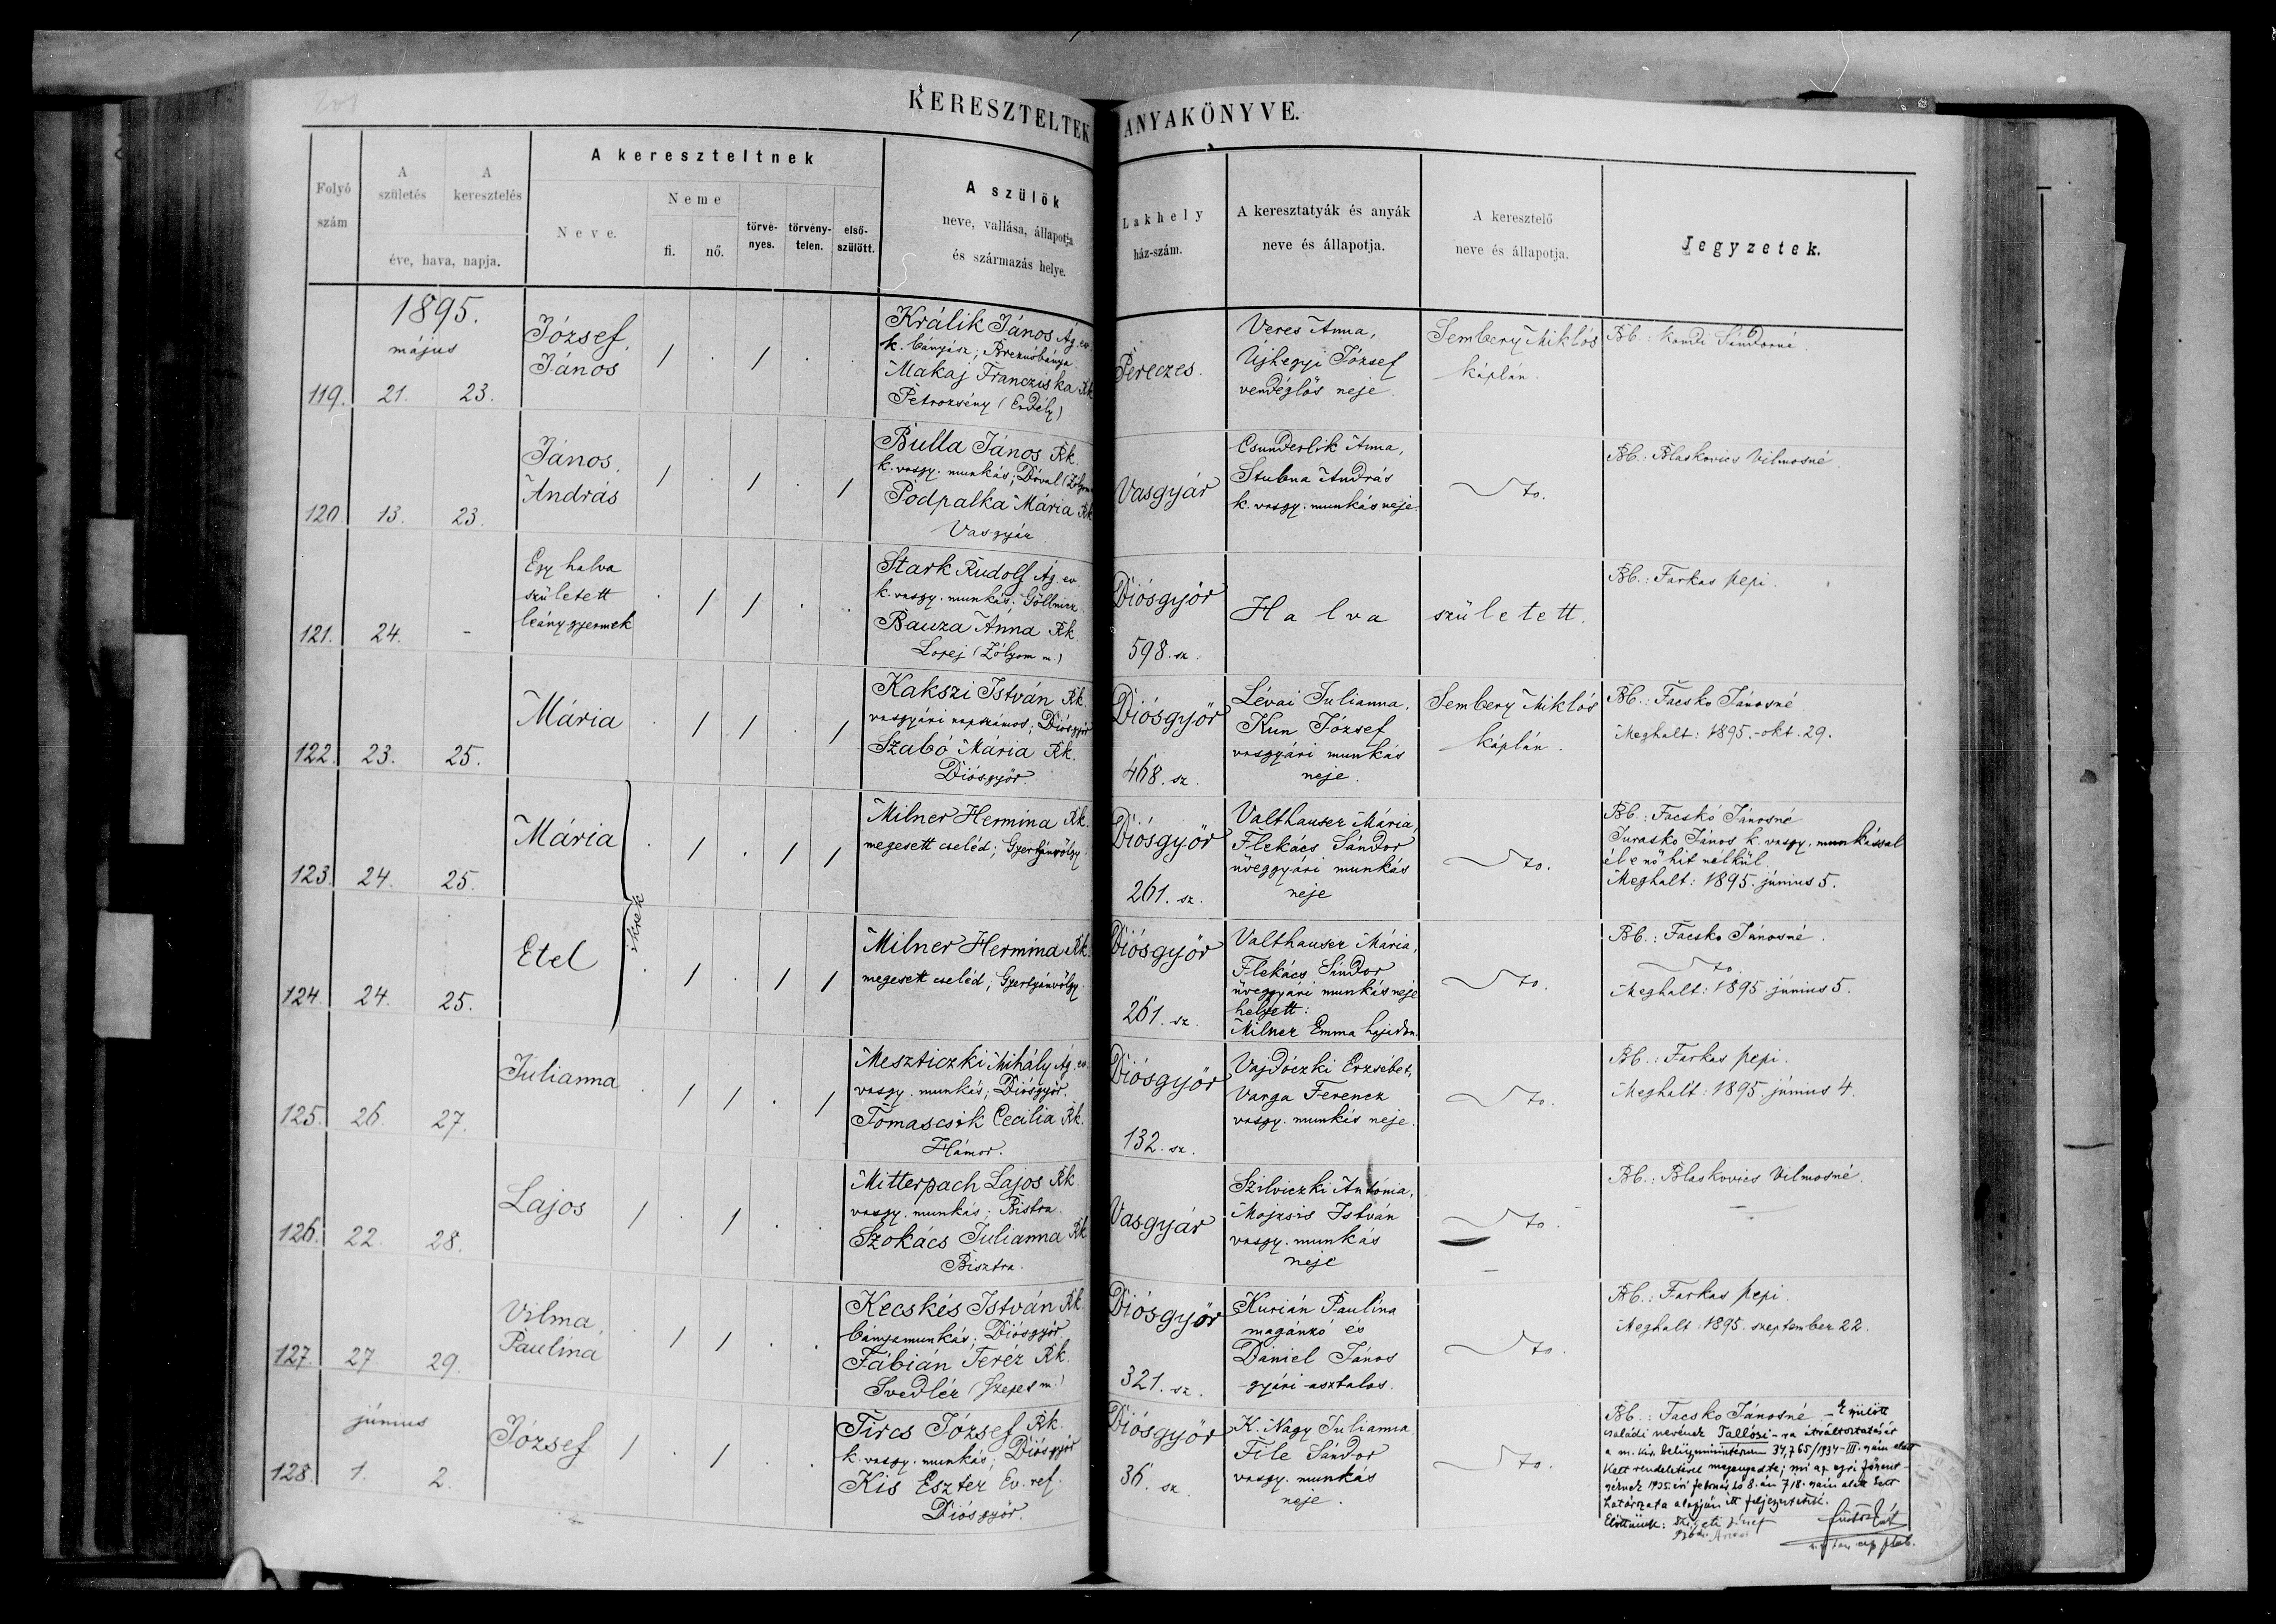 KERESZTELTEK ANYAKÖNYVE.
Folyó szám
A születés
A keresztelés
éve, hava, napja.
A kereszteltnek
Neve.
Neme
fi.
nő.
törvé-
nyes.
törvény-
telen.
első-
szülött.
A szülők
neve, vallása, állapotja
és származás helye.
Lakhely
ház-szám.
A keresztatyák és anyák
neve és állapotja.
A keresztelő
neve és állapotja.
Jegyzetek.
1895.
május
119. 21. 23.
József,
János
1 . 1 . .
Králik János Ág. ev.
k. bányász; Breznóbánya
Makaj Francziska Rk
Petrozsény (Erdély)
Pereczes.
Veres Anna,
Újhegyi József
vendéglős neje.
Sembery Miklós
káplán.
Bb.: Kondi Sándorné.
120. 13. 23.
János,
András
1 . 1 . 1
Bulla János Rk.
k. vasgy. munkás; Dóval (Zólyom
Podpalka Mária Rk
Vasgyár
Vasgyár
Csunderlik Anna,
Stubna András
k. vasgy. munkás neje.
to.
Bb.: Blaskovics Vilmosné.
121. 24. -
Egy halva
született
leánygyermek
. 1 1 . .
Stark Rudolf Ág. ev.
k. vasgy. munkás; Göllnicz
Bauza Anna Rk
Lopej (Zólyom m.)
Diósgyőr
598. sz.
Halva született.
Bb.: Farkas pepi.
122. 23. 25.
Mária
. 1 1 . 1
Kakszi István Rk.
vasgyári napszámos; Diósgyőr
Szabó Mária Rk.
Diósgyőr.
Diósgyőr
468. sz.
Lévai Julianna,
Kun József
vasgyári munkás
neje.
Sembery Miklós
káplán.
Bb.: Facsko Jánosné
Meghalt: 1895.-okt. 29.
123. 24. 25.
Mária
ikrek
. 1 . 1 1
Milner Hermina Rk.
megesett cseléd; Gyertyánvölgy.
Diósgyőr
261. sz.
Valthauser Mária,
Flekács Sándor
üveggyári munkás
neje
to.
Bb.: Facskó Jánosné
Jurasko János k. vasgy. munkással
él e nő hit nélkül.
Meghalt: 1895. június 5.
124. 24. 25.
Etel
. 1 . 1 1
Milner Hermina Rk.
megesett cseléd; Gyertyánvölgy.
Diósgyőr
261. sz.
Valthauser Mária,
Flekács Sándor
üveggyári munkás neje
helyett:
Milner Emma hajadon.
to.
Bb.: Facsko Jánosné.
to.
Meghalt: 1895. június 5.
125. 26. 27.
Julianna
. 1 1 . 1
Meszticzki Mihály Ág. ev.
vasgy. munkás; Diósgyőr.
Tomascsik Cecilia Rk.
Hámor.
Diósgyőr
132. sz.
Vajdóczki Erzsébet,
Varga Ferencz
vasgy. munkás neje.
to.
Bb.: Farkas pepi.
Meghalt: 1895. június 4.
126. 22. 28.
Lajos
1 . 1 . .
Mitterpach Lajos Rk.
vasgy. munkás; Bistra.
Szokács Julianna Rk
Bisztra.
Vasgyár
Szilviczki Antonia,
Mojzsis István
vasgy. munkás
neje
to.
Bb.: Blaskovics Vilmosné.
127. 27. 29.
Vilma,
Paulina
. 1 1 . .
Kecskés István Rk.
bányamunkás; Diósgyőr
Fábián Teréz Rk.
Svedlér (Szepes m.)
Diósgyőr
321. sz.
Kurián Paulina
magánzó és
Dániel János
gyári asztalos.
to.
Bb.: Farkas pepi.
Meghalt: 1895. szeptember 22.
június
128. 1. 2.
József
1 . 1 . .
Tircs József Rk.
k. vasgy. munkás; Diósgyőr
Kis Eszter Ev. ref.
Diósgyőr.
Diósgyőr
36. sz.
K. Nagy Julianna
File Sándor
vasgy. munkás
neje.
to.
Bb.: Facsko Jánosné - E szülött
családi nevének Tallósi-ra átváltoztatását
a m. kir. belügyminisztérium 34,765/1934-III. szám alatt
kelt rendeletével megengedte; mi az egri
1935. évi február hó 8.-án 718. szám alatt kelt
határozata alapján itt feljegyeztetett.
Előttünk: Szigeti József